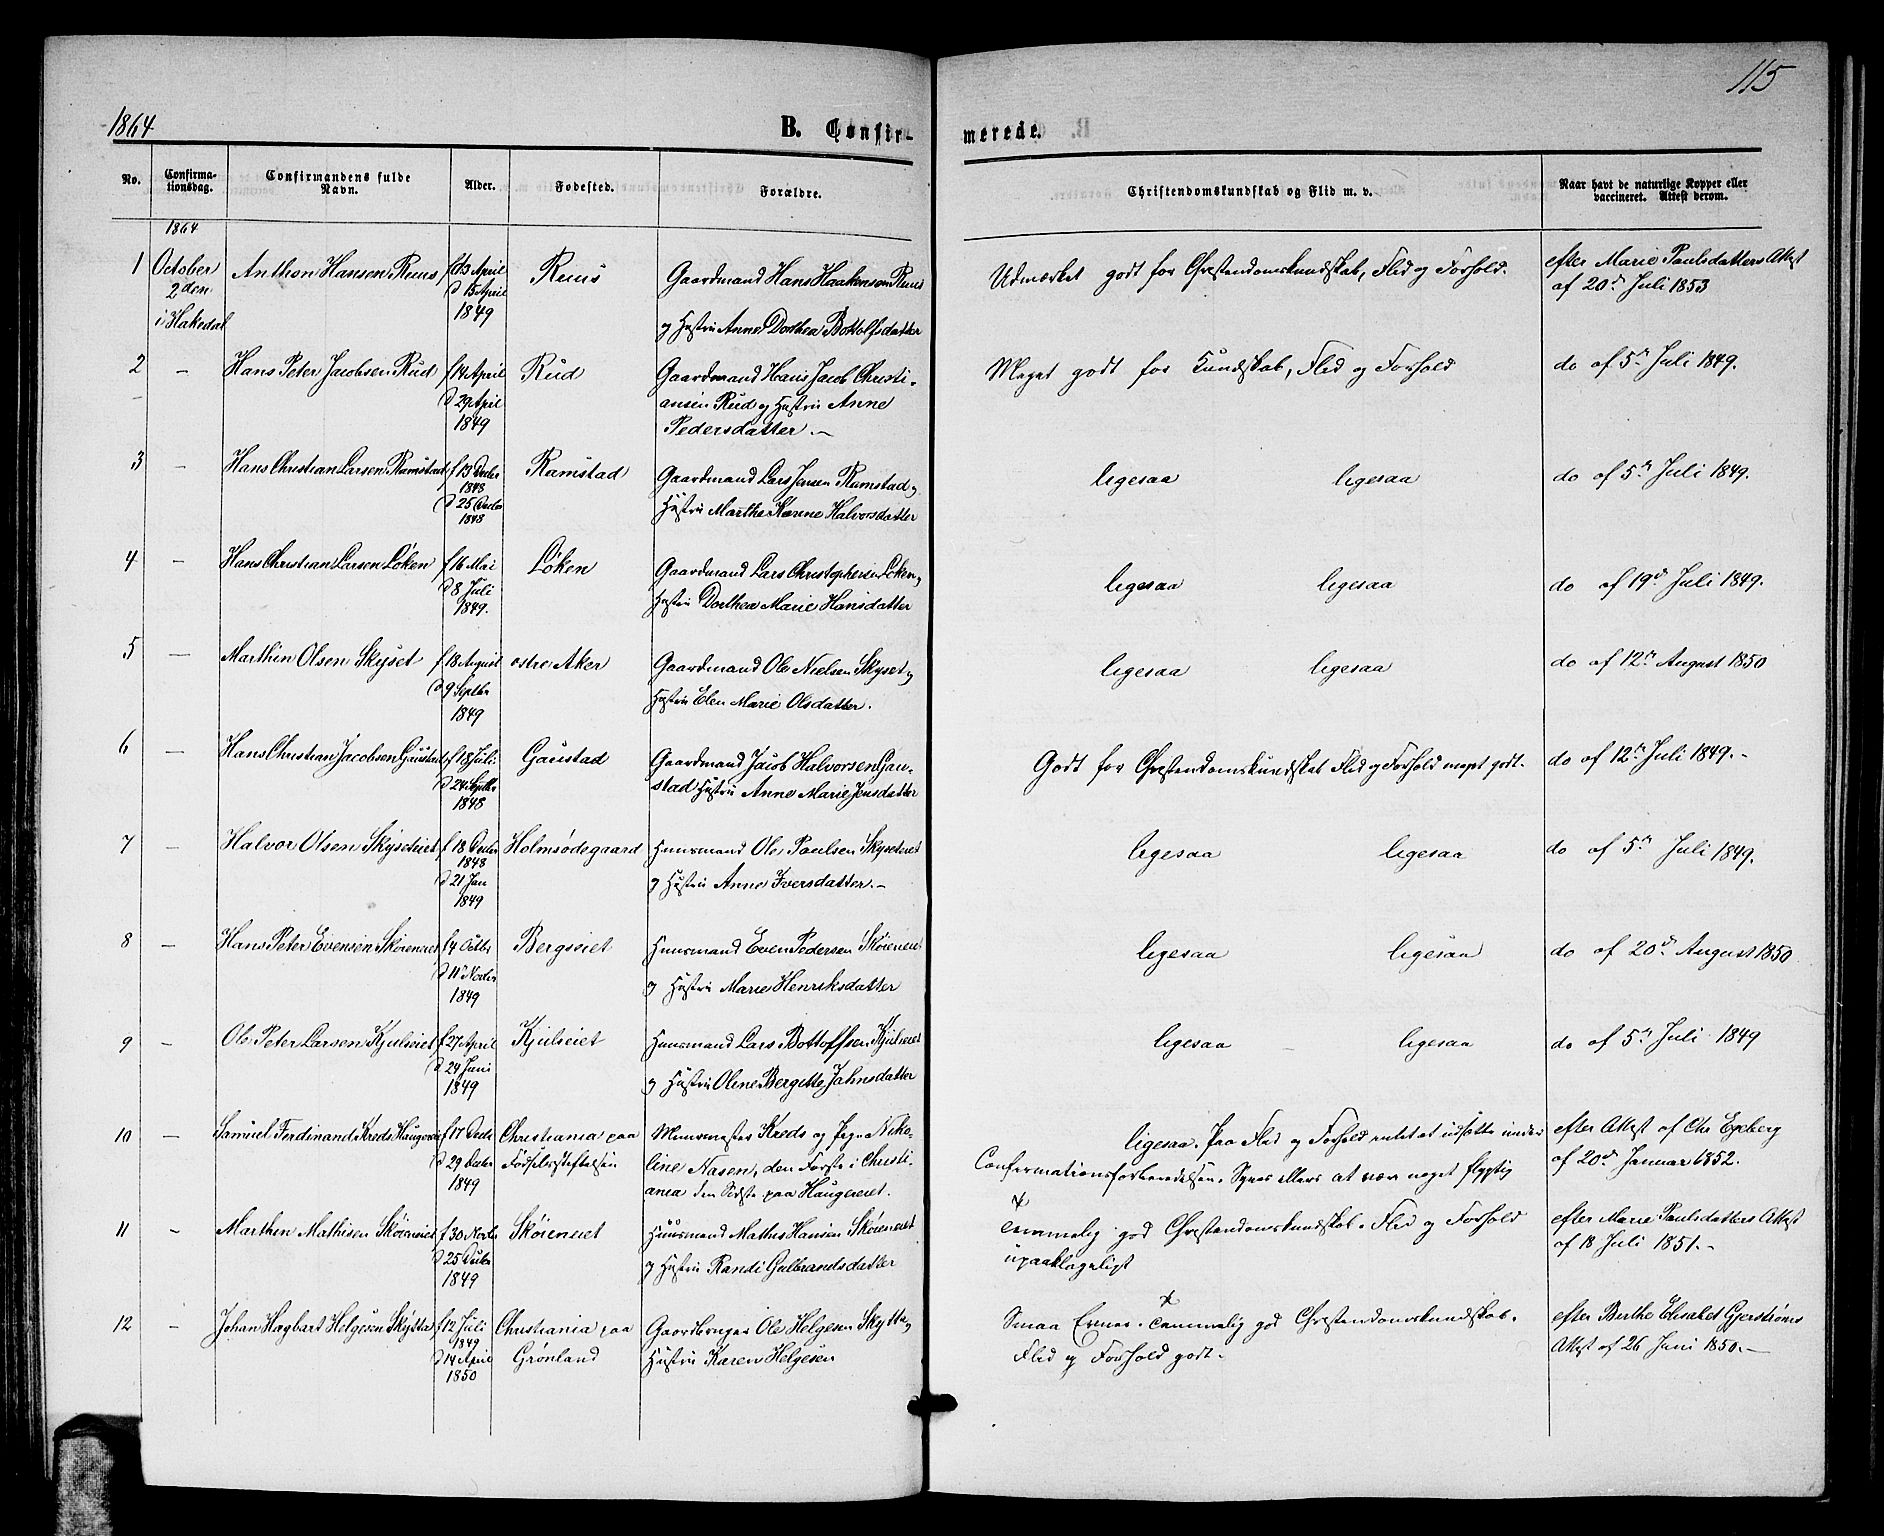 115
1864
B. Confir-
merede.
No.
Confirma-
tionsdag.
Confirmandens fulde
Navn.
Alder.
Fødested.
Forældre.
Christendomskundskab og Flid m. v.
Naar havt de naturlige Kopper eller
vaccineret. Attest derom.
1864
1 October
2den
i Hakedal
Anthon Hansen Ruus
f 13 April
d 15 April
1849
Ruus
Gaardmand Hans Haakensen Ruus
og Hustru Anne Dorthea Bottolfsdatter
Udmærket godt for Christendomskundskab, Flid og Forhold.
efter Marie Paulsdatters Attest
af 20de Juli 1853
2 —
Hans Peter Jacobsen Rud
f 14 April
d 29 April
1849
Rud
Gaardmand Hans Jacob Christi-
ansen Rud og Hustru Anne
Pedersdatter. —
Meget godt for Kundskab, Flid og Forhold
do af 5te Juli 1849.
3 —
Hans Christian Larsen Ramstad
f 13 Decbr
1848
d 25 Decbr
1848
Ramstad
Gaardmand Lars Jensen Ramstad og
Hustru Marthe Karene Halvorsdatter
ligesaa ligesaa
do af 5te Juli 1849.
4 —
Hans Christian Larsen Løken
f 16 Mai
d 8 Juli
1849.
Løken
Gaardmand Lars Christophersen Løken og
Hustru Dorthea Marie Hansdatter
ligesaa ligesaa
do af 19de Juli 1849.
5 —
Marthin Olsen Skyset
f 18 August
d 9 Septbr
1849
østre Aker
Gaardmand Ole Nielsen Skyset og
Hustru Elen Marie Olsdatter.
ligesaa ligesaa
do af 12te August 1850
6 —
Hans Christian Jacobsen Gaustad
f 18 Juli
d 24 Septbr
1848
Gaustad
Gaardmand Jacob Halvorsen Gau-
stad Hustru Anne Marie Jensdatter
Godt for Christendomskundskab Flid og Forhold meget godt.
do af 12te Juli 1849. -
7 —
Halvor Olsen Skyseteiet
f 18 Decbr
1848
d 21 Jan
1849
Holmsødegaard
Huusmand Ole Paulsen Skyseteiet
og Hustru Anne Iversdatter. —
ligesaa ligesaa
do af 5te Juli 1849.
8 —
Hans Peter Evensen Skøieneiet
f 4 Octbr
d 11 Novbr
1849
Bergseiet
Huusmand Even Pedersen Skøieneiet
og Hustru Marie Henriksdatter
ligesaa ligesaa
do af 20de August 1850
9 —
Ole Peter Larsen Kjulseiet
f 27 April
d 24 Juni
1849
Kjulseiet
Huusmand Lars Bottolfsen Kjulseiet
og Hustru Oline Bergitte Jahnsdatter
ligesaa — ligesaa
do af 5te Juli 1849
10 —
Samuel Ferdinand Kreds
f 17 Decbr
d 29 Decbr
1849
Christiania paa
Fødselsstiftelsen
Muurmester Kreds og Pige Niko-
line Nasen, den Første i Christi-
ania den Sidste paa Haugereiet.
ligesaa. Paa Flid og Forhold under
Confirmationsforberedelsen. Synes ellers at være noget flygtig
efter Attest af Chr Eyeberg
af 20de Januar 1852.
11 —
Marthin Mathisen Skøieneiet
f 30 Novbr
d 25 Decbr
1849
Skøieneiet
Huusmand Mathis Hansen Skøieneiet
og Hustru Randi Gulbrandsdatter
Temmelig god Christendomskundskab. Flid og Forhold
upaaklageligt
efter Marie Paulsdatters Attest
af 18 Juli 1851. -
12 —
Johan Hagbart Helgesen Skytta
f 12 Juli
1849
d 14 April
1850
Christiania paa
Grønland
Gaardbruger Ole Helgesen Skytta og
Hustru Karen Helgesen
Smaa Evner. Temmelig god Christendomskundskab.
Flid og Forhold godt.
efter Berthe Elisabet Gjerstiøns
Attest af 26 Juni 1850. —